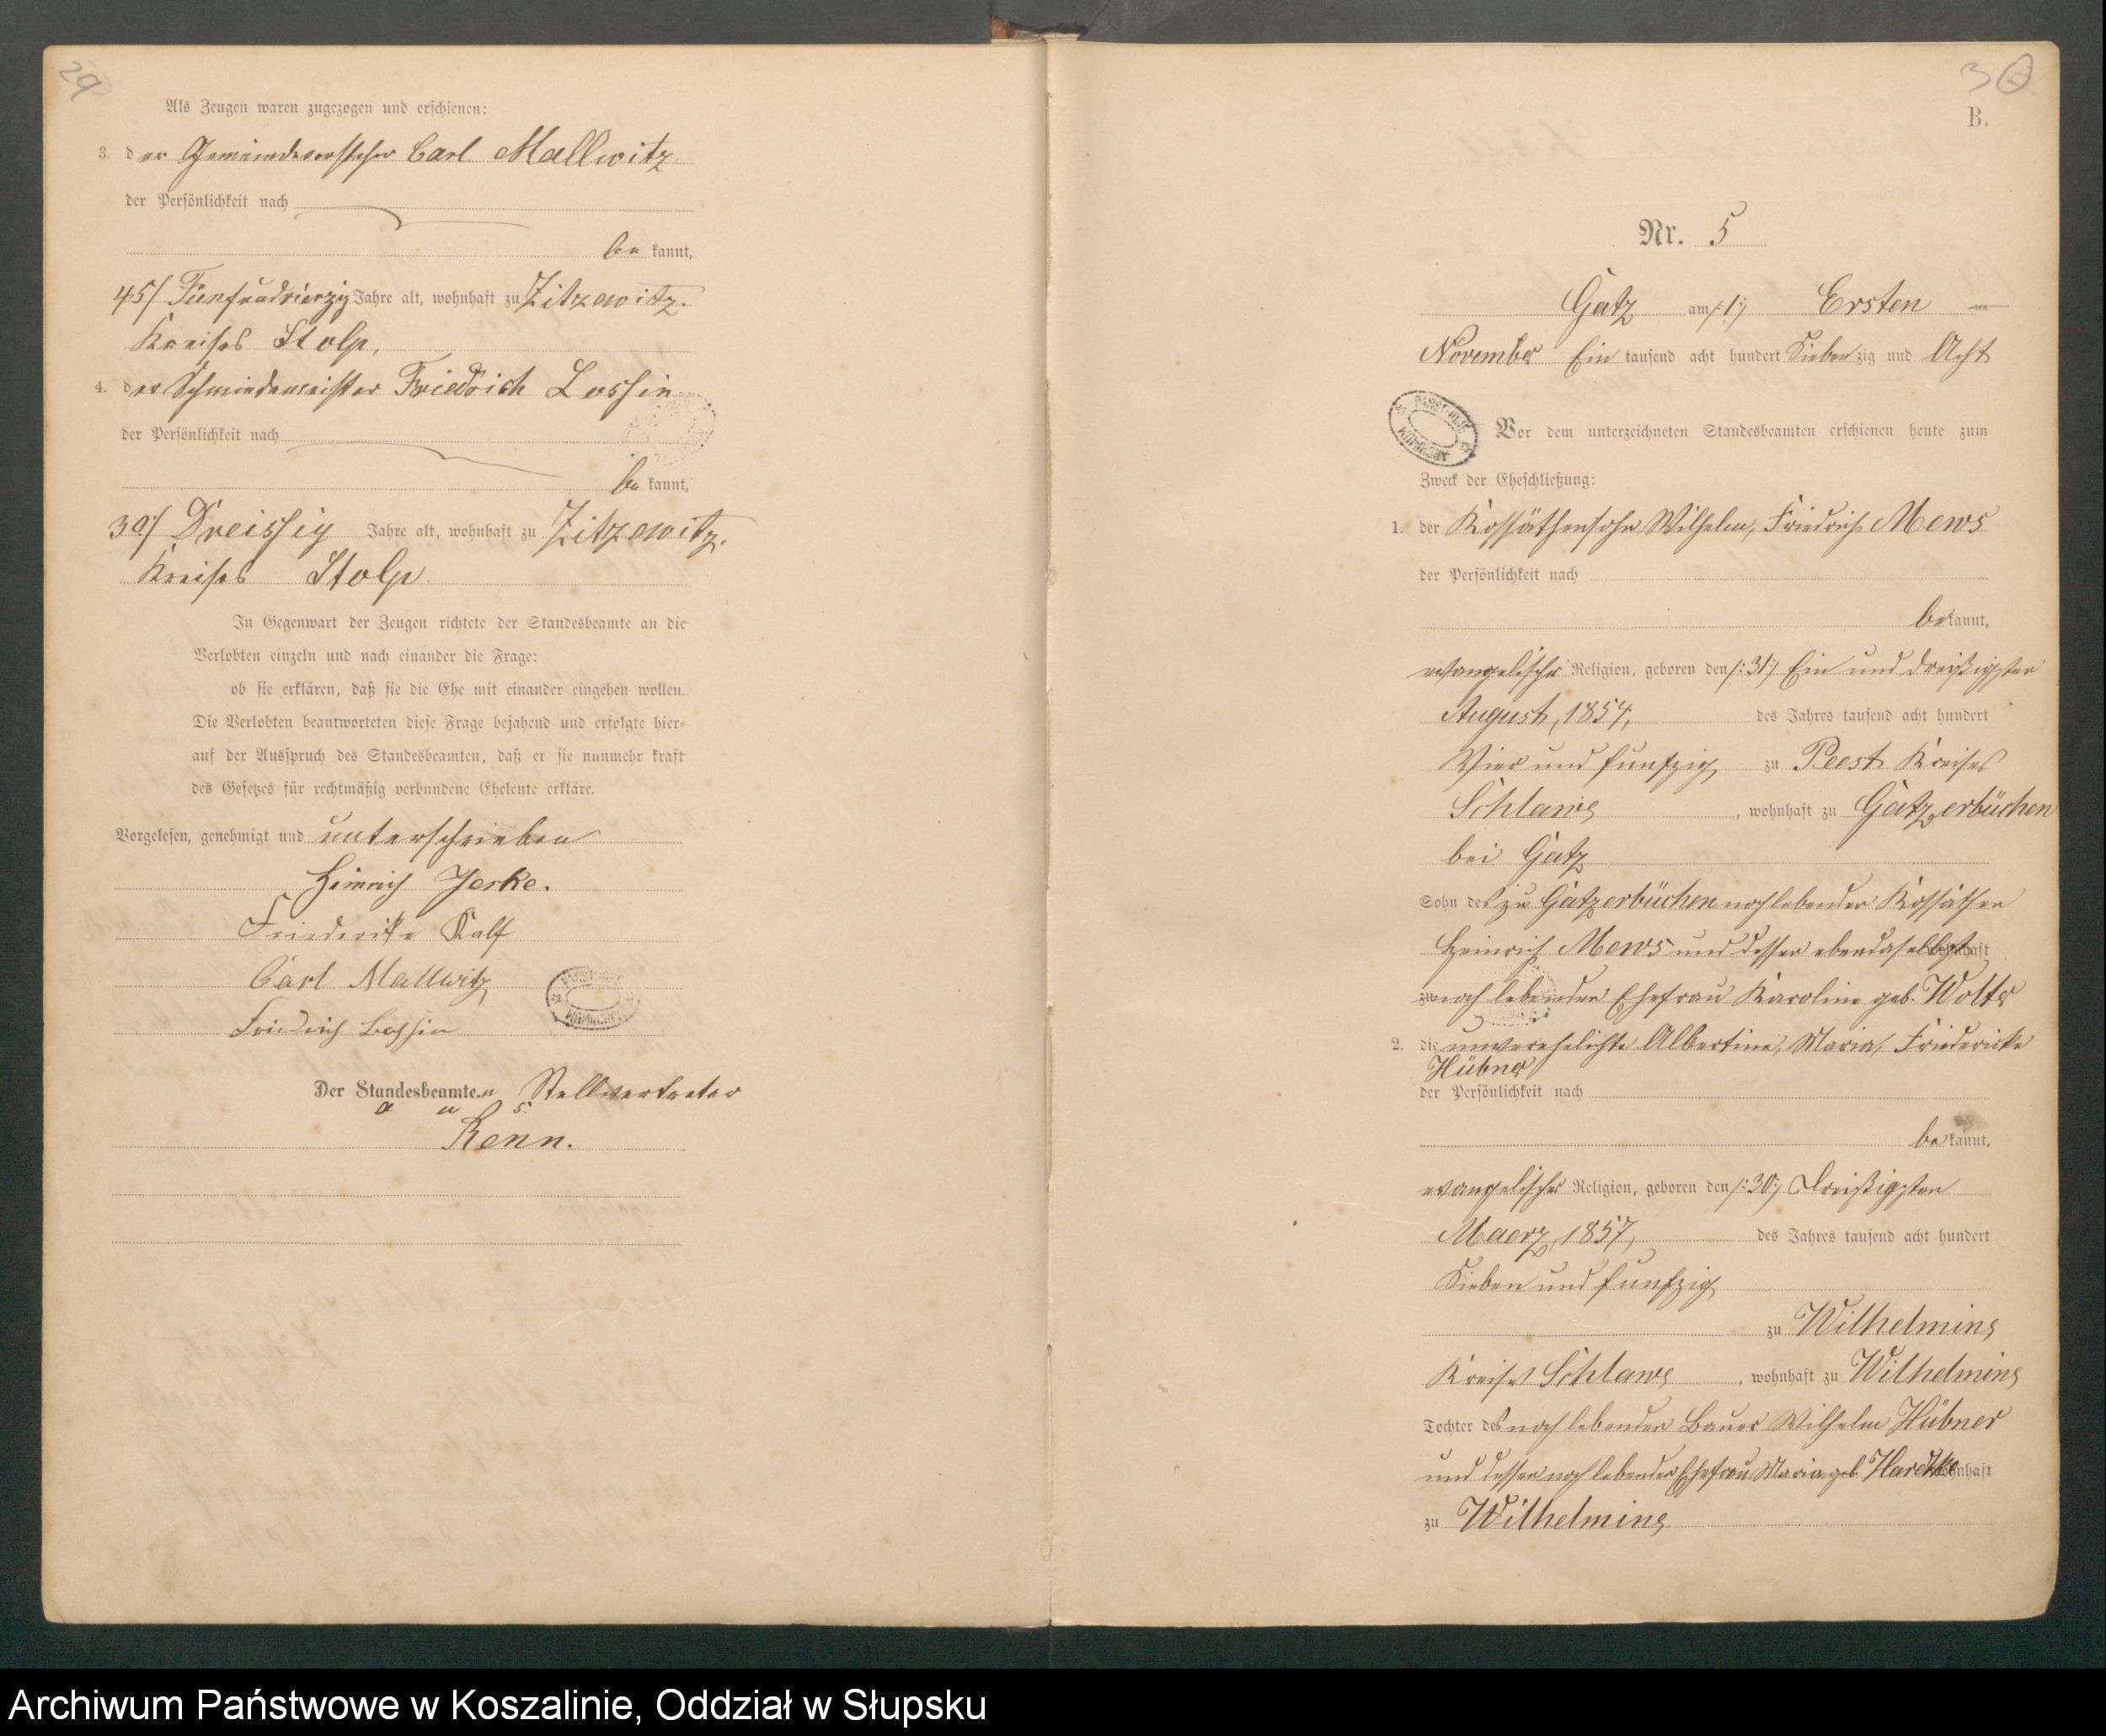 29
Als Zeugen waren zugezogen und erschienen:
3. der Gemeindevorsteher Carl Mallwitz
der Persönlichkeit nach
be kannt,
45/ Fünfundvierzig Jahre alt, wohnhaft zu Zitzewitz.
Kreises Stolp,
4. der Schmiedemeister Friedrich Lossin
der Persönlichkeit nach
be kannt,
30/ Dreissig Jahre alt, wohnhaft zu Zitzewitz.
Kreises Stolp.
In Gegenwart der Zeugen richtete der Standesbeamte an die
Verlobten einzeln und nach einander die Frage:
ob sie erklären, daß sie die Ehe mit einander eingehen wollen.
Die Verlobten beantworteten diese Frage bejahend und erfolgte hier-
auf der Ausspruch des Standesbeamten, daß er sie nunmehr kraft
des Gesetzes für rechtmäßig verbundene Eheleute erkläre.
Vorgelesen, genehmigt und unterschrieben
Heinrich Jeske.
Friederike Kalf
Carl Mallwitz
Friedrich Lossin
Der Standesbeamte. Stellvertreter
Renn.
30
B.
Nr. 5
Gatz am /:1:/ Ersten
November Ein tausend acht hundert Siebenzig und Acht
Vor dem unterzeichneten Standesbeamten erschienen heute zum
Zweck der Eheschließung:
1. der Kossäthensohn Wilhelm, Friedrich Mews
der Persönlichkeit nach
bekannt,
evangelischer Religion, geboren den /:31:/ Ein und dreißigsten
August, 1854, des Jahres tausend acht hundert
Vier und funfzig zu Peest Kreises
Schlawe, wohnhaft zu Gatzerbüchen
bei Gatz
Sohn des zu Gatzerbüchen noch lebenden Kossäthen
Heinrich Mews und dessen ebendaselbst wohnhaft
zu noch lebenden Ehefrau Karoline geb. Wolter
2. die unverehelichte Albertine, Maria, Friedericke
Hübner
der Persönlichkeit nach
be kannt,
evangelischer Religion, geboren den /:30:/ Dreißigsten
Maerz, 1857, des Jahres tausend acht hundert
Sieben und funfzig
zu Wilhelmine
Kreises Schlawe, wohnhaft zu Wilhelmine
Tochter des noch lebenden Bauer Wilhelm Hübner
und dessen noch lebenden Ehefrau Maria geb. wohnhaft
zu Wilhelmine
Archiwum Państwowe w Koszalinie, Oddział w Słupsku